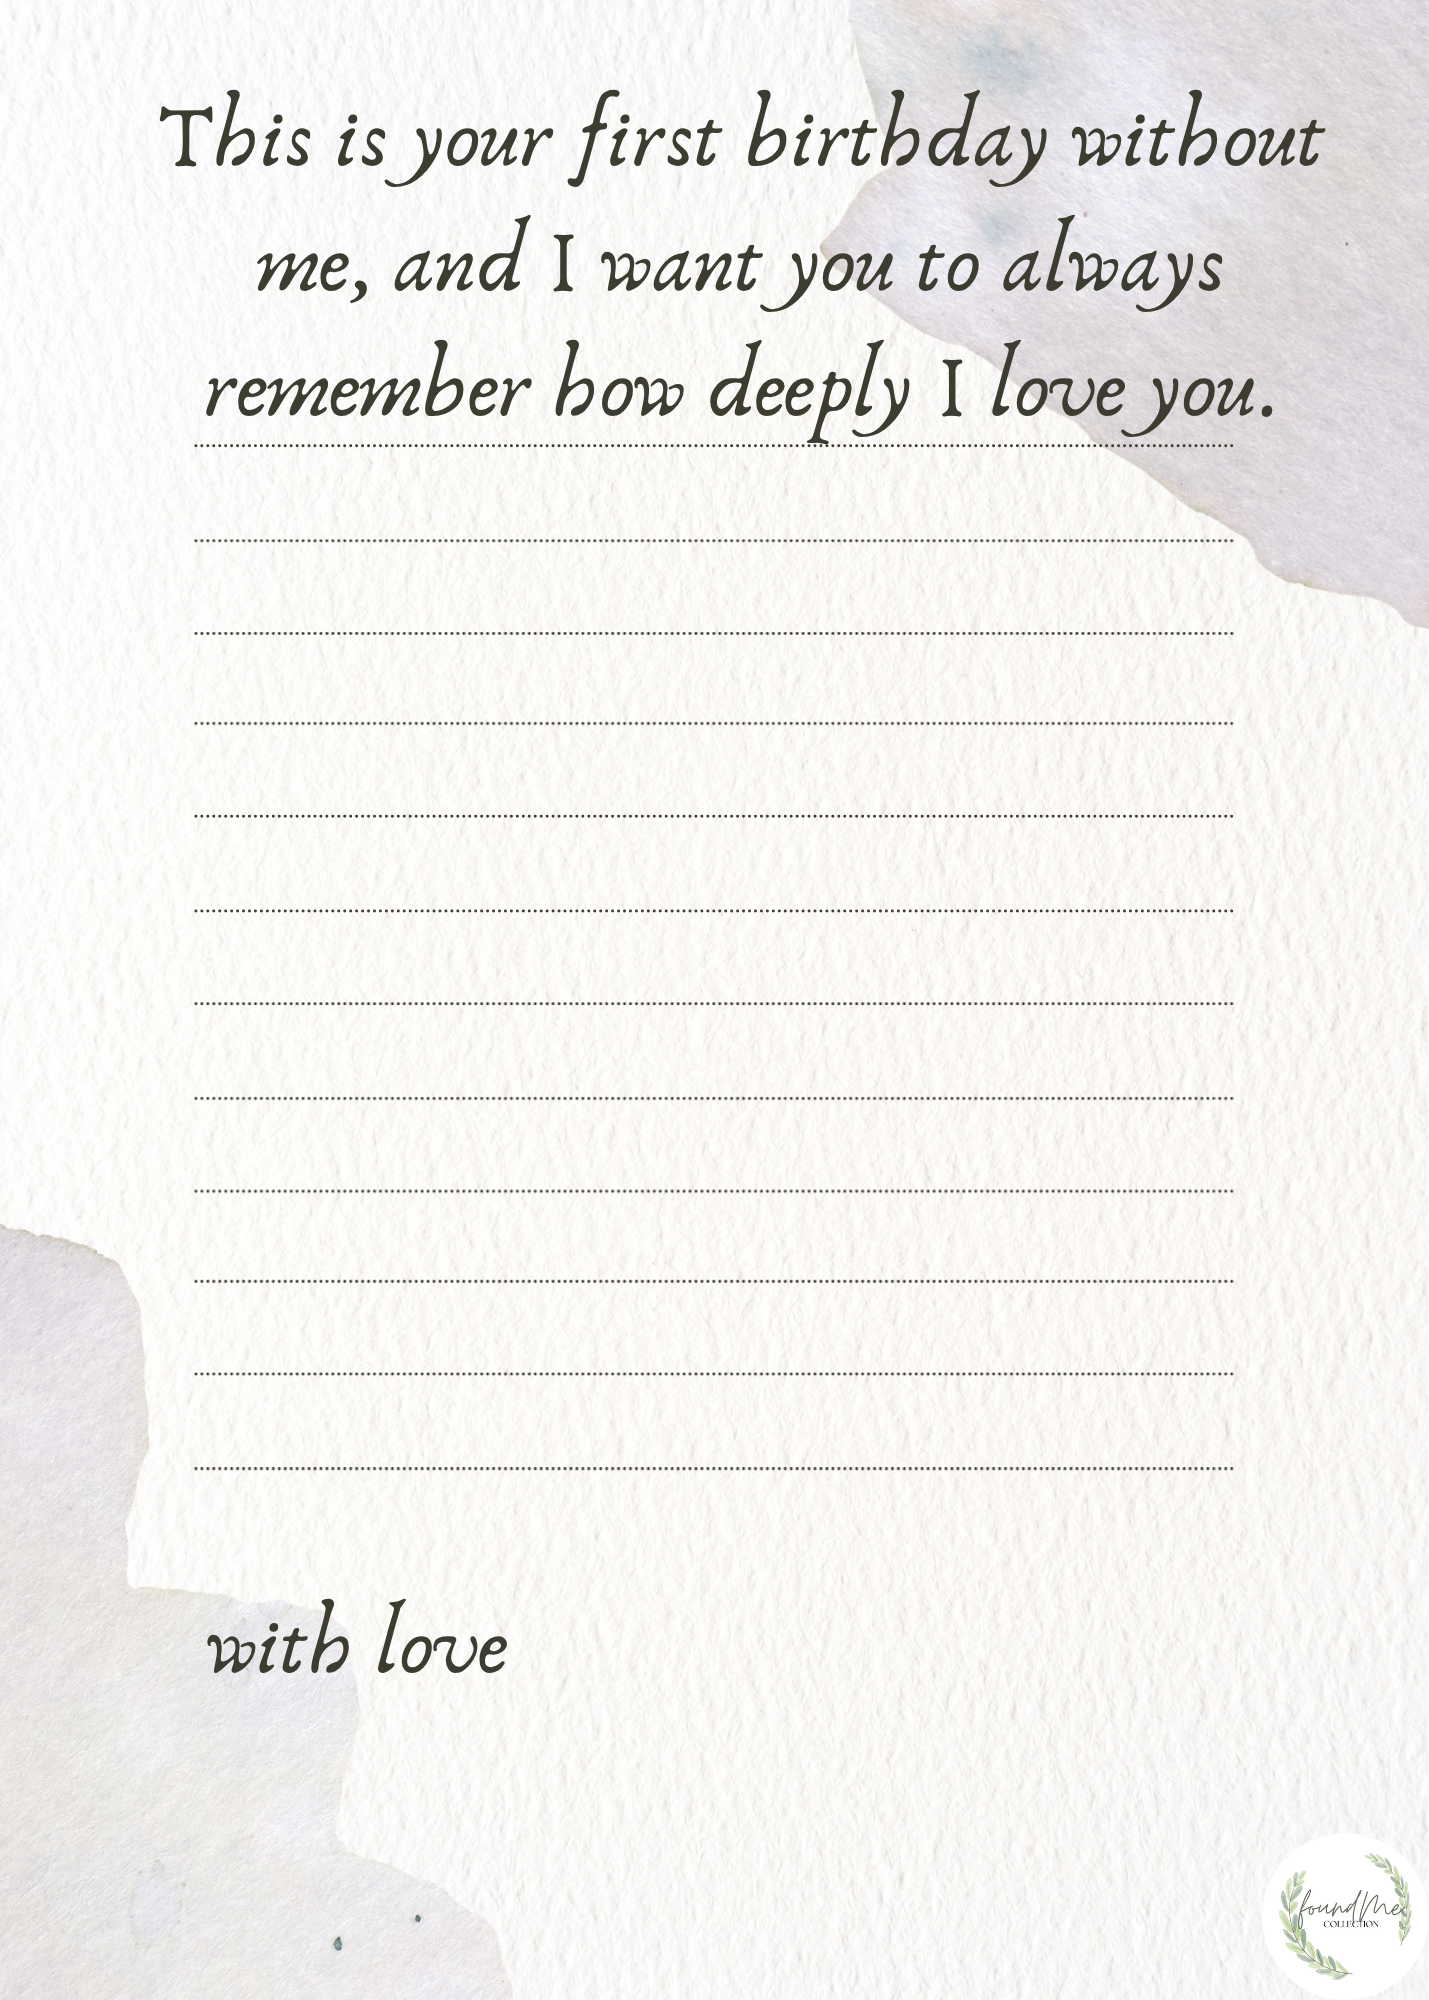 This is your first birthday without
me, and I want you to always
remember how deeply I love you.
with love
foundMe
COLLECTION